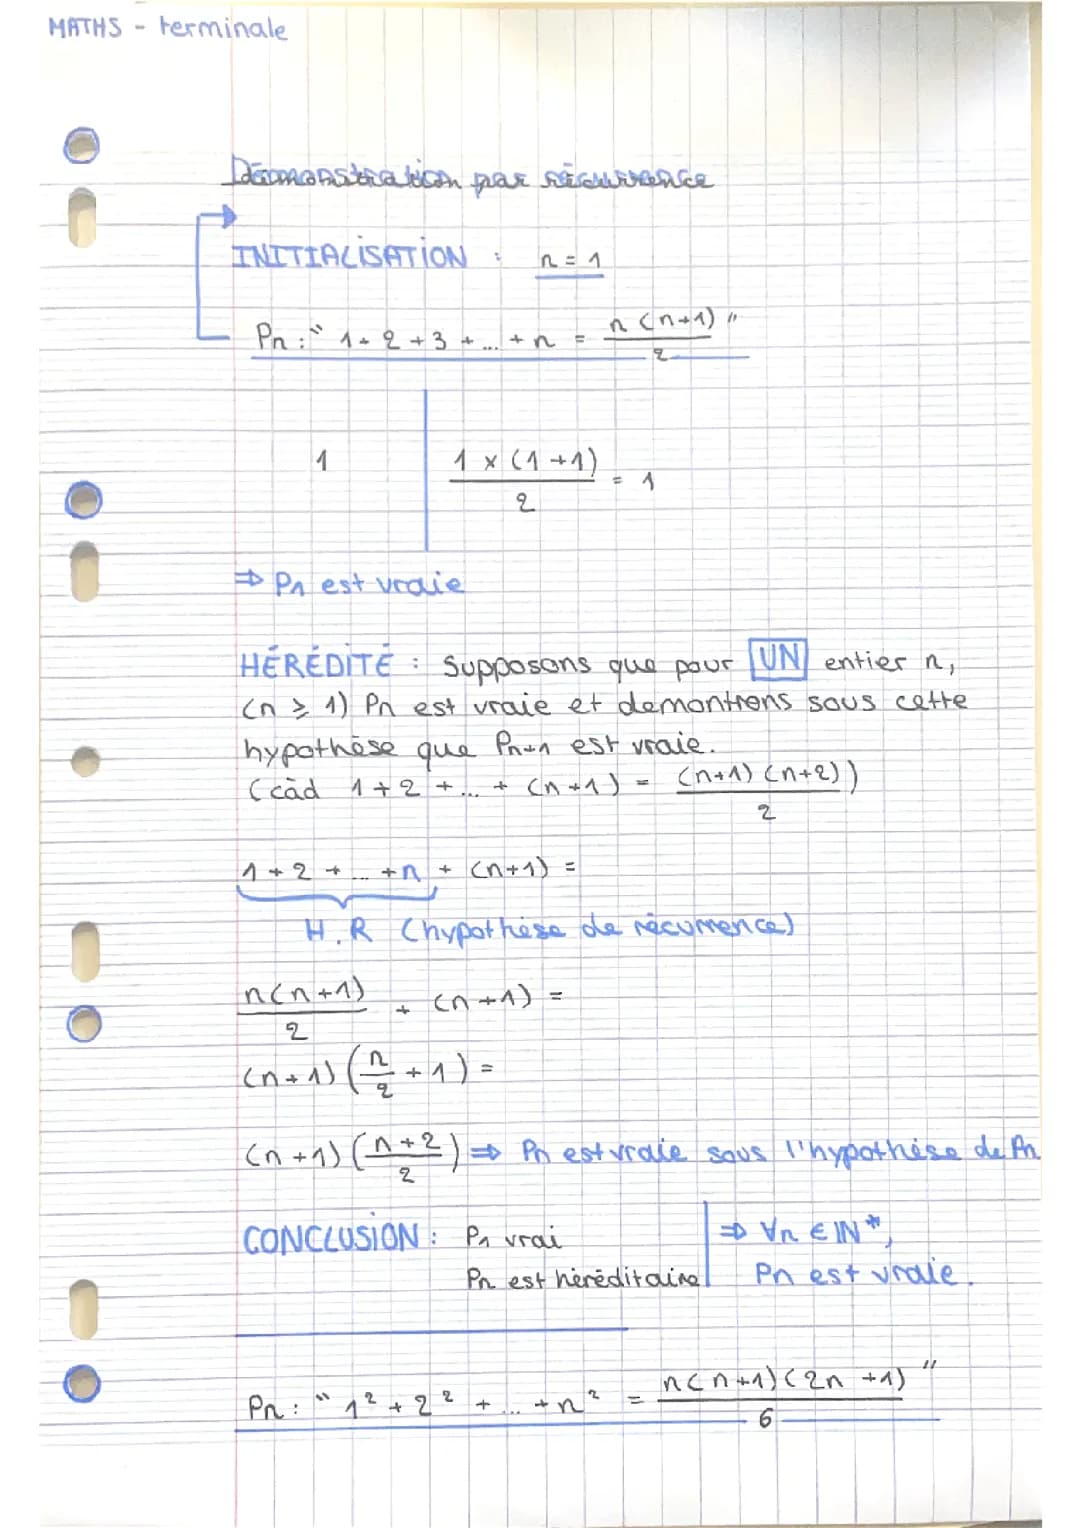 MATHS - terminale
Démonstration par récurrence
INITIALISATION : n = 1
Pn : " 1 + 2 + 3 + ... + n = n (n+1) / 2 "
1 | 1 x (1 + 1) / 2 = 1
⇒ P1 est vraie
HÉRÉDITÉ : Supposons que pour UN entier n,
(n ≥ 1) Pn est vraie et demontrons sous cette
hypothèse que Pn+1 est vraie.
(càd 1 + 2 + ... + (n+1) = (n+1) (n+2) / 2)
1 + 2 + ... + n + (n+1) =
H.R (hypothèse de récurrence)
n(n+1) / 2 + (n+1) =
(n+1) (n/2 + 1) =
(n+1) (n+2 / 2) ⇒ Pn est vraie sous l'hypothèse de Pn
CONCLUSION : P1 vrai | ⇒ ∀n ∈ IN*,
Pn est héréditaire | Pn est vraie.
Pn : " 1² + 2² + ... + n² = n(n+1)(2n+1) / 6 "